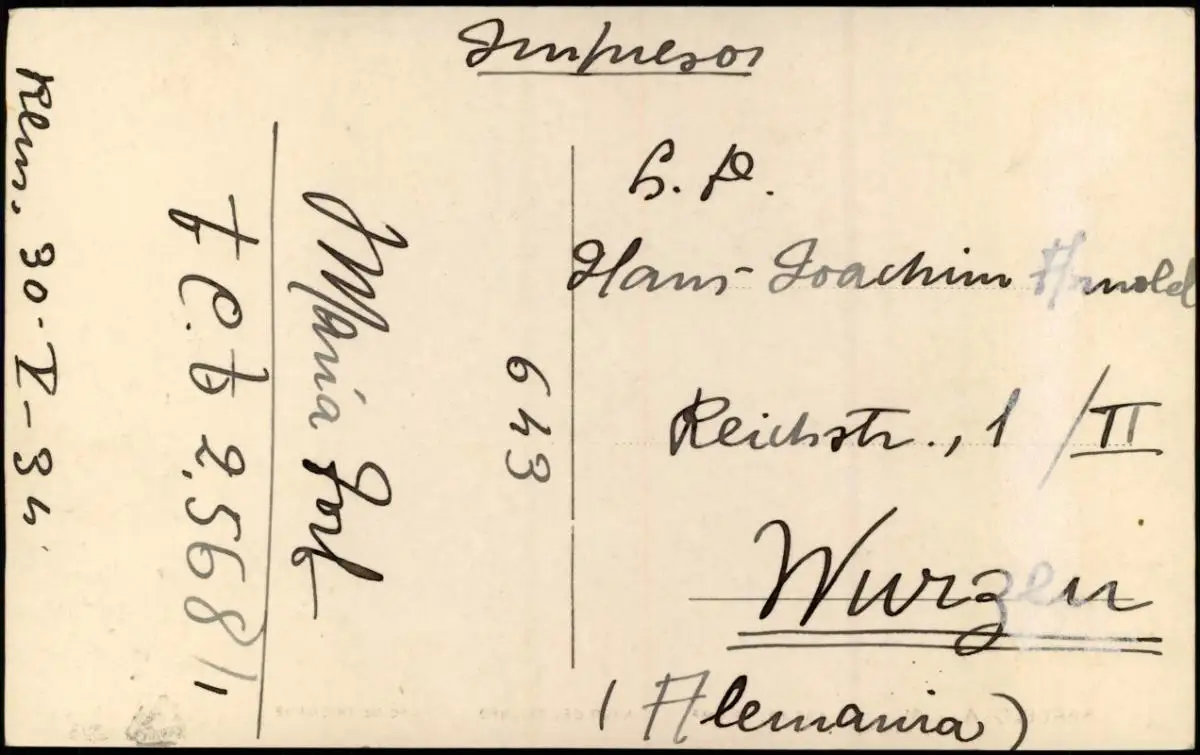 Impresos
S. D.
Hans-Joachim Arnold
Reichstr., 1 / II
Wurzen
( Alemania )
643
Maria
2.568
Rem. 30-V-34